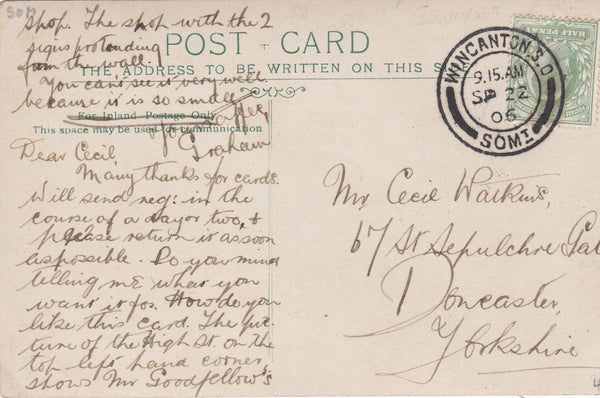 Shop. The shop with the 2
signs protruding
from the wall.
You cant see it very well
because it is so small.
Graham
POST CARD
THE ADDRESS TO BE WRITTEN ON THIS
For Inland Postage Only
This space may be used for communication
Dear Cecil
Many thanks for cards.
Will send neg: in the
course of a day or two, &
please return it as soon
as possible. Do you mind
telling me what you
want it for. How do you
like this card. The pic-
ture of the High St. on the
top left hand corner,
shows Mr Goodfellow's
WINCANTON.S.O
9.15.AM
SP 22
06
SOMT
HALF PENNY
Mr Cecil Watkins,
67 St Sepulchre Gat
Doncaster,
Yorkshire